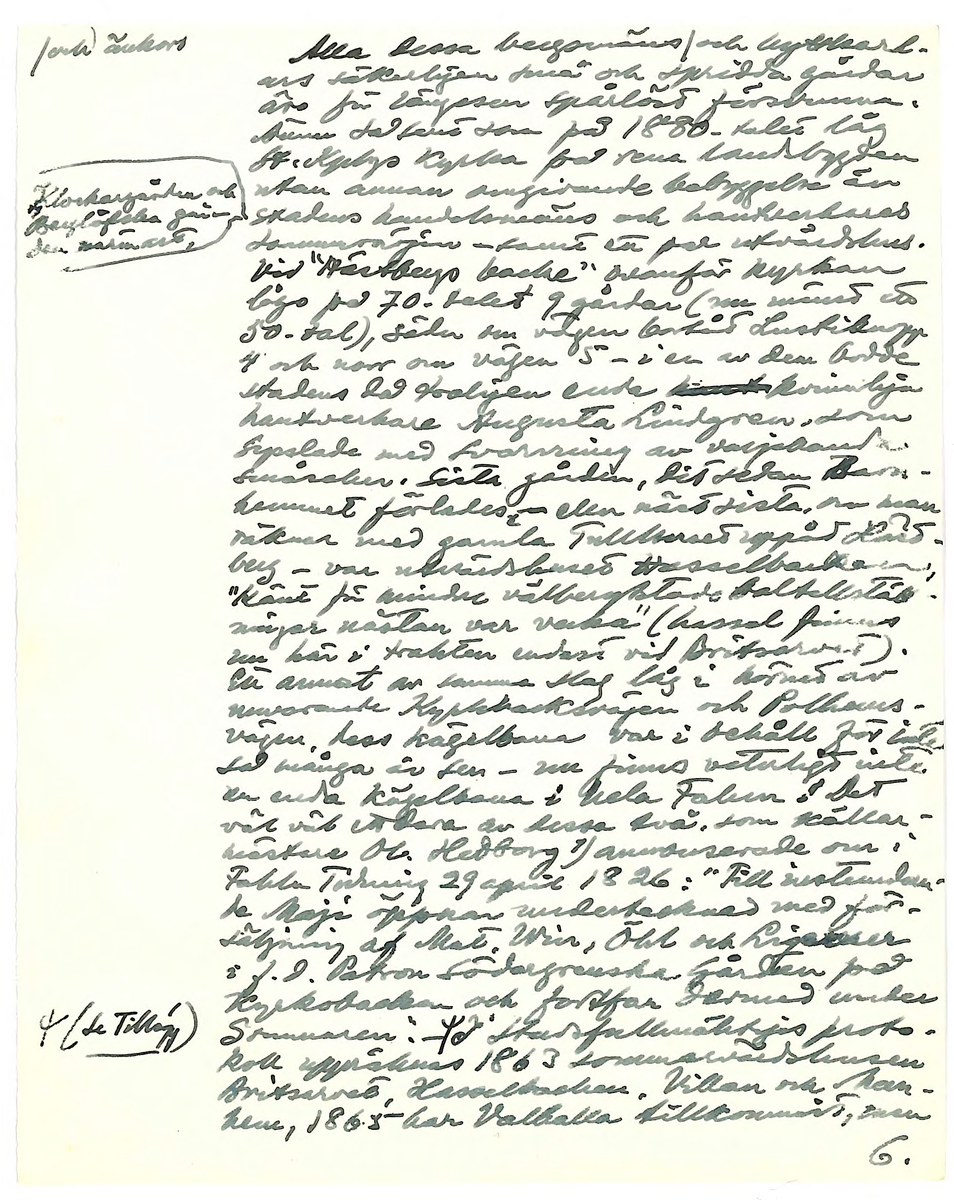 /och änkors
Alla dessa bergsmäns/och hyttkarl-
ars säkerligen små och spridda gårdar
äro för längesen spårlöst försvunna.
Ännu så sent som på 1880-talet låg
St. Kop:bgs Kyrka på rena landsbygden
utan annan omgivande bebyggelse än
stadens handelsmäns och hantverkares
sommarnöjen – samt ett par utvärdshus.
Klockargården och
Bergslöfska går-
den närmast,
Vid "Hästbergs backe" ovanför Kyrkan
lågo på 70-talet 9 gårdar (nu minst ett
50-tal), söder om vägen bortåt Lustiknopp
4 och norr om vägen 5 – i en av dem bodde
stadens då troligen enda kvinnliga
hantverkare Augusta Lindgren, som
sysslade med svarvning av varjehanda
småsaker. Sista gården, dit sedan Barn-
hemmet förlades, – den näst sista, om man
räknar med gamla Tullhuset uppåt Häst-
berg – var utvärdshuset Hasselbacken,
"känt för mindre välberyktade baltillställ-
ningar nästan var vecka" (hassel finns
nu här i trakten endast vid Britsarvet).
Ett annat av samma slag låg i hörnet av
nuvarande Kyrkbacksvägen och Polhems-
vägen, dess kägelbana var i behåll för inte
så många år sen – nu finns veterligt inte
en enda kägelbana i hela Falun! Det
var väl ettdera av dessa två, som källar-
mästare Ol. Hedborg annonserade om i
Fahlu Tidning 29 april 1826: "Till instundan-
de Maji öppnar undertecknad med för-
säljning af Mat, Win, Öhl och Liqueurer
i f. d. Patron Södergrenska Gården på
Kyrkobacken och fortfar dermed under
Sommaren". I Stadsfullmäktiges proto-
ψ (se Tillägg)
koll uppräknas 1863 sommarvärdshusen
Britsarvet, Hasselbacken, Villan och Man-
hem, 1865 har Valhalla tillkommit, men
6.